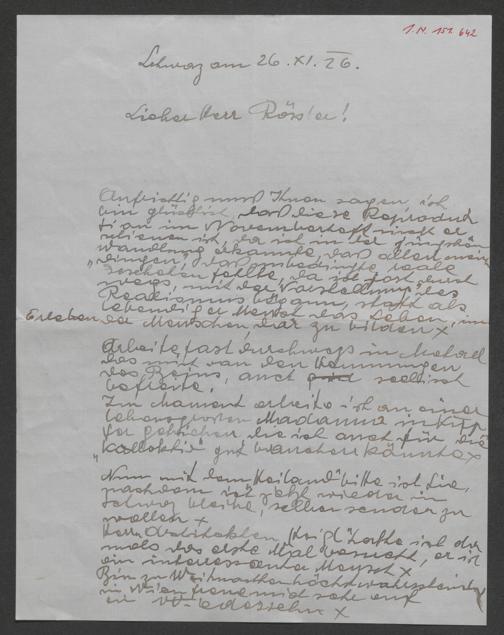 I.N. 151.642
Schwaz am 26.XI.26.
Lieber Herr Rössler!
Aufrichtig muß Ihnen sagen, ich
bin glücklich, daß diese Reproduk
tion im Novemberheft nicht er
schienen ist, da ich in der
wandlung erkannte, daß allen mein
"dingen", das unbedingte, reale
geschehen fehlte, da ich
wegs, mit der Vorstellung des
Realismus begann, statt als
lebendiger Mensch das Leben, im
Erleben der Menschen, klar zu bilden x
Arbeite fast durchwegs in Metall
das mich von den Hemmungen
des Beins, auch seelisch
befreite.
Im Moment arbeite ich an einer
lebensgrossen Madonna in Kupf
fer getrieben, die ich auch für die
"Kollektiv" gut brauchen könnte x
Nun mit dem "Heiland" bitte ich Sie,
nachdem ich jetzt wieder in
Schwaz bleibe, selben senden zu
wollen x
Herrn Architekten, hatte ich da
mals das erste Mal besucht, er ist
ein interessanter Mensch x
Bin zu Weihnachten höchstwahrscheinlich
in Wien freue mich sehr auf
ein Wiedersehn x